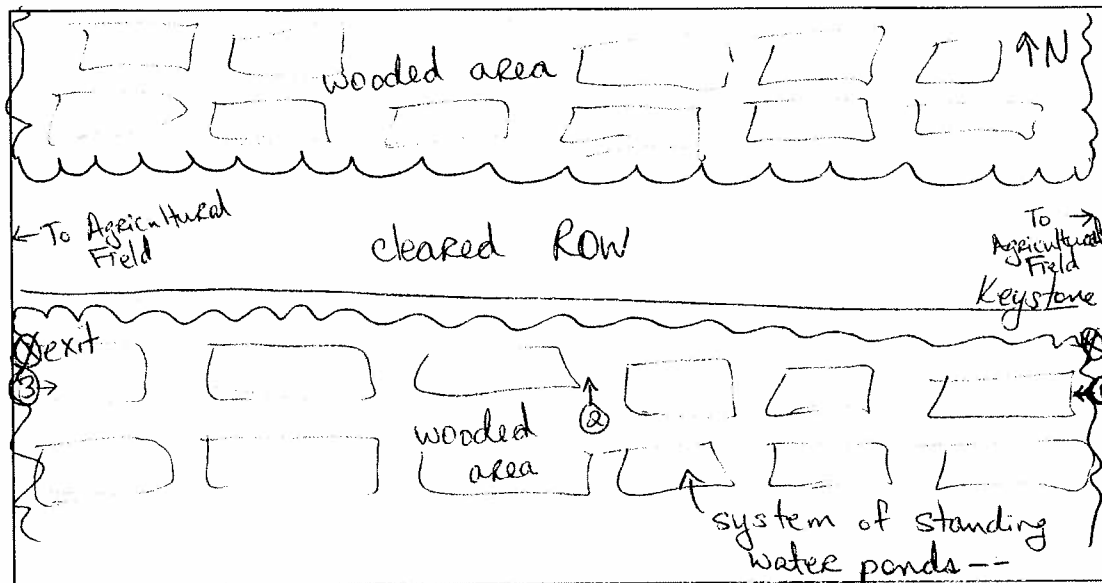 ↑N
wooded area
← To Agricultural
Field
cleared ROW
To →
Agricultural
Field
Keystone
exit
③→
↑
②
wooded
area
system of standing
water ponds--